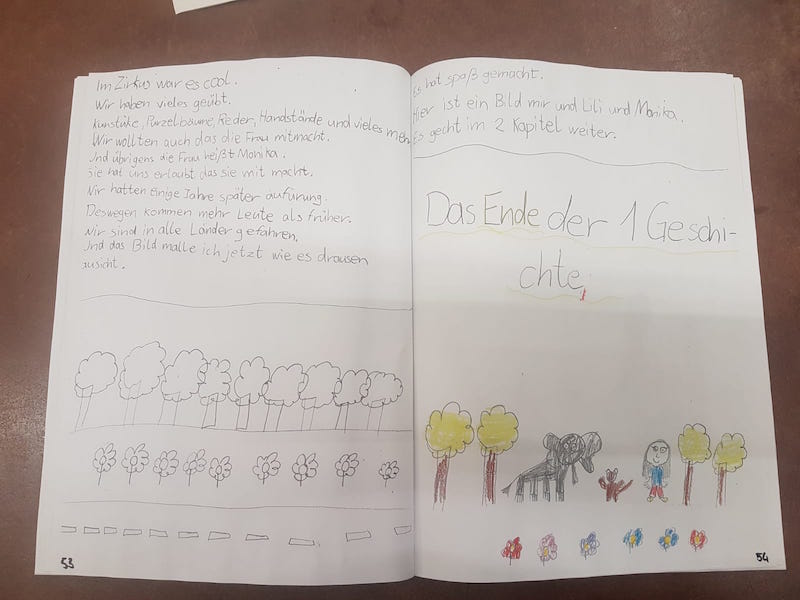 Im Zirkus war es cool.
Wir haben vieles geübt.
Kunstüke, Purzelbäume, Reder, Handstände und vieles mehr
Wir wollten auch das die Frau mitmacht.
Und übrigens die Frau heißt Monika.
Sie hat uns erlaubt das sie mit macht.
Wir hatten einige Jahre später aufürung.
Deswegen kommen mehr Leute als früher.
Wir sind in alle Länder gefahren.
Und das Bild malle ich jetzt wie es drausen
ausicht.
53
Es hat spaß gemacht.
Hier ist ein Bild mir und Lili und Monika.
Es gecht im 2 Kapitel weiter.
Das Ende der 1 Geschi-
chte.
54